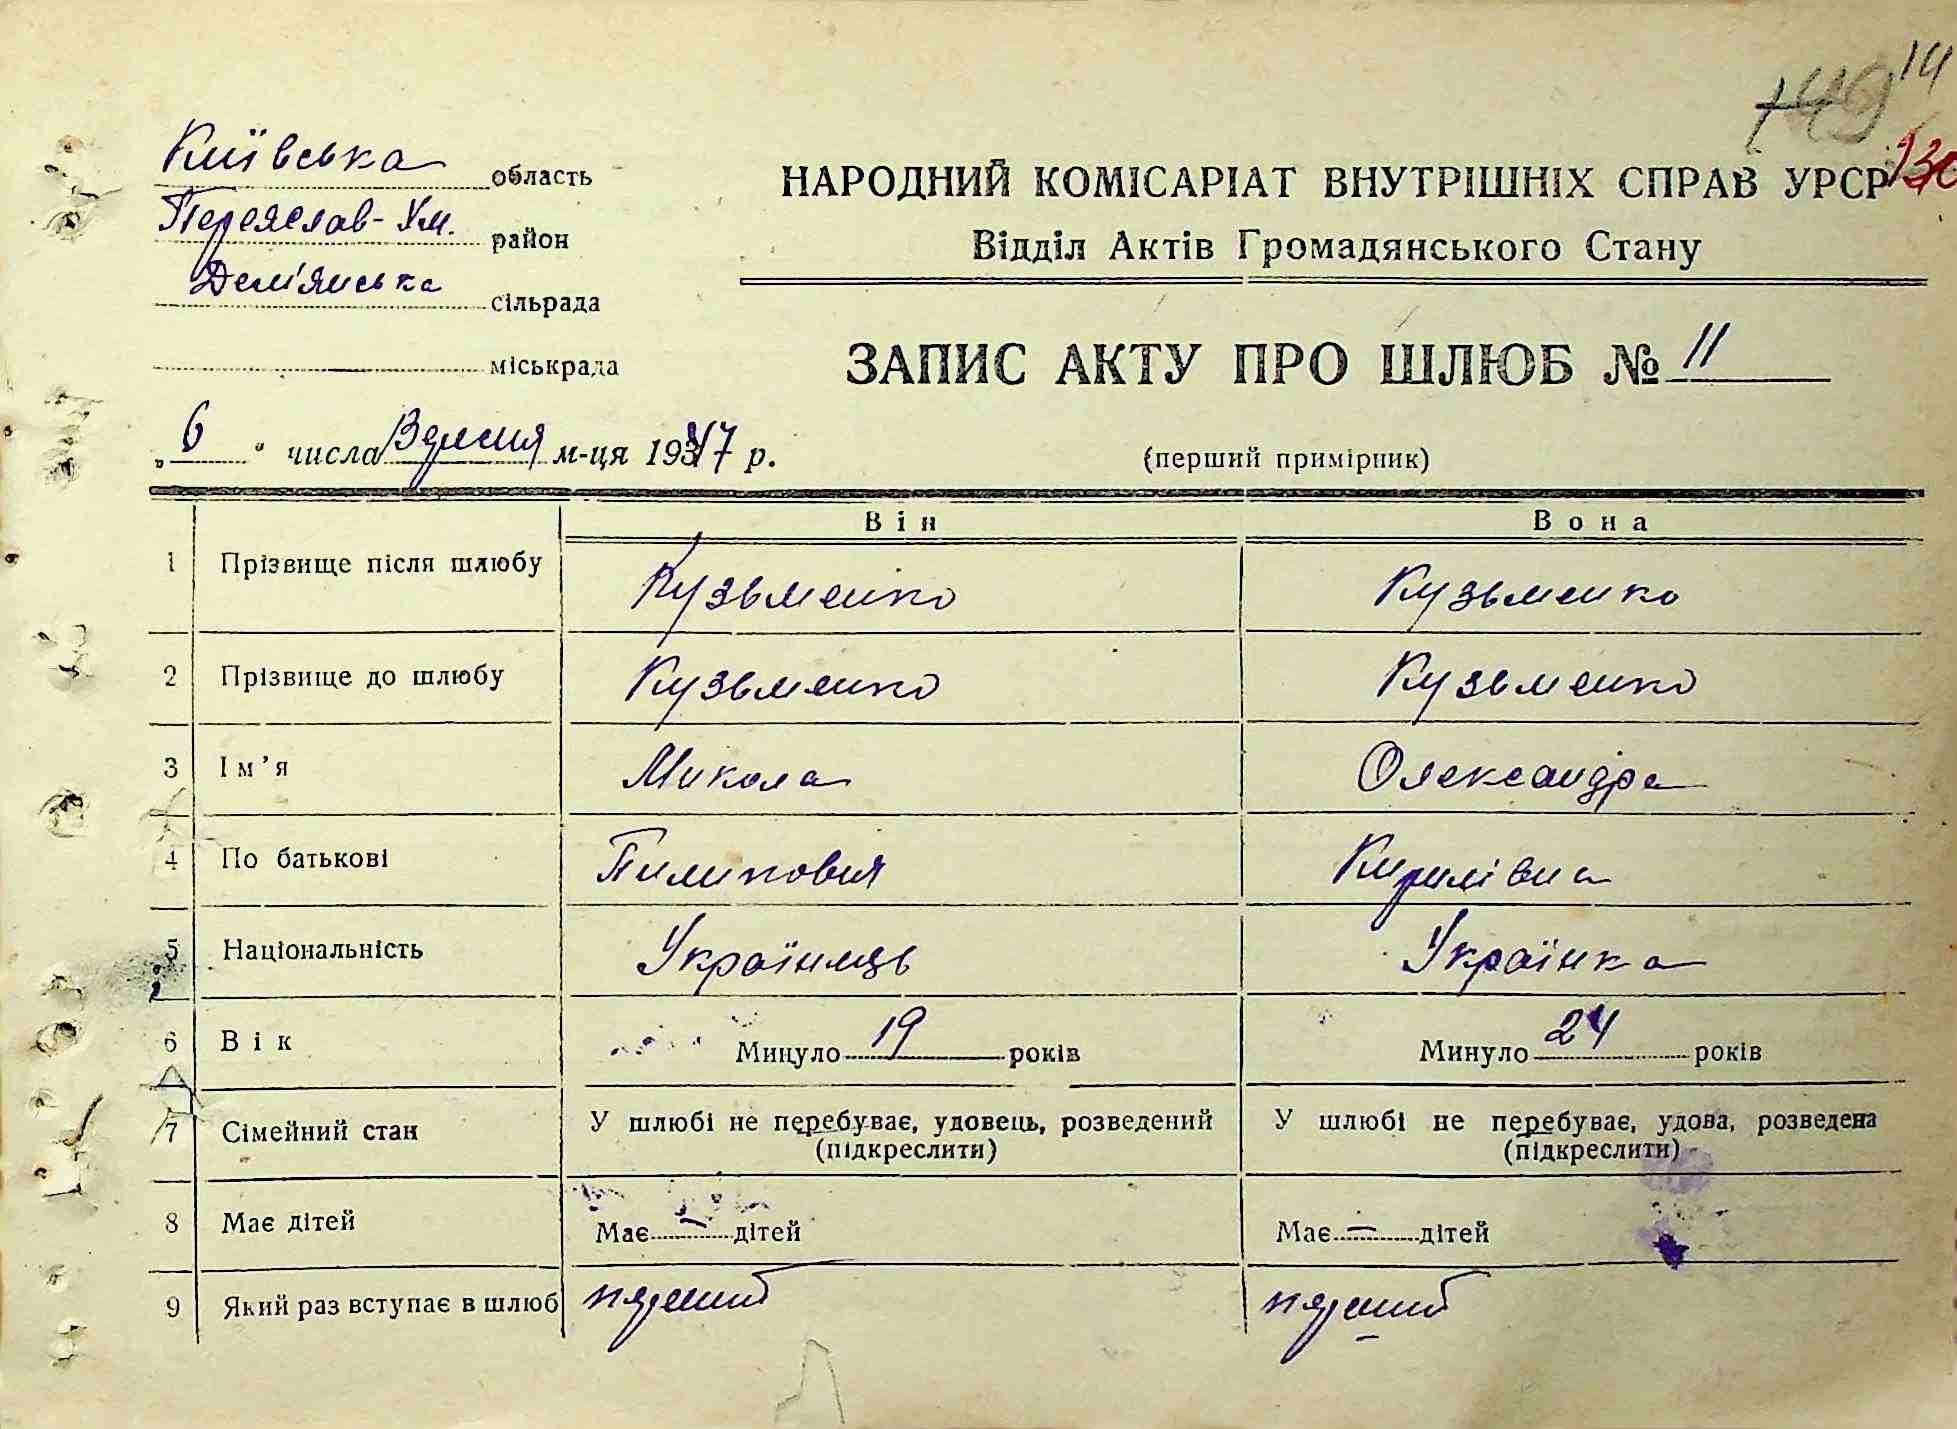 14
149
130
Київська область
Переяслав-Хм. район
Дем'янська сільрада
міськрада
НАРОДНИЙ КОМІСАРІАТ ВНУТРІШНІХ СПРАВ УРСР
Відділ Актів Громадянського Стану
ЗАПИС АКТУ ПРО ШЛЮБ № 11
„ 6 " числа Вересня м-ця 1947 р.
(перший примірник)
Він Вона
1 Прізвище після шлюбу Кузьменко Кузьменко
2 Прізвище до шлюбу Кузьменко Кузьменко
3 Ім'я Микола Олександра
4 По батькові Пилипович Кирилівна
5 Національність Українець Українка
6 Вік Минуло 19 років Минуло 24 років
7 Сімейний стан У шлюбі не перебуває, удовець, розведений У шлюбі не перебуває, удова, розведена
(підкреслити) (підкреслити)
8 Має дітей Має — дітей Має — дітей
9 Який раз вступає в шлюб перший перший